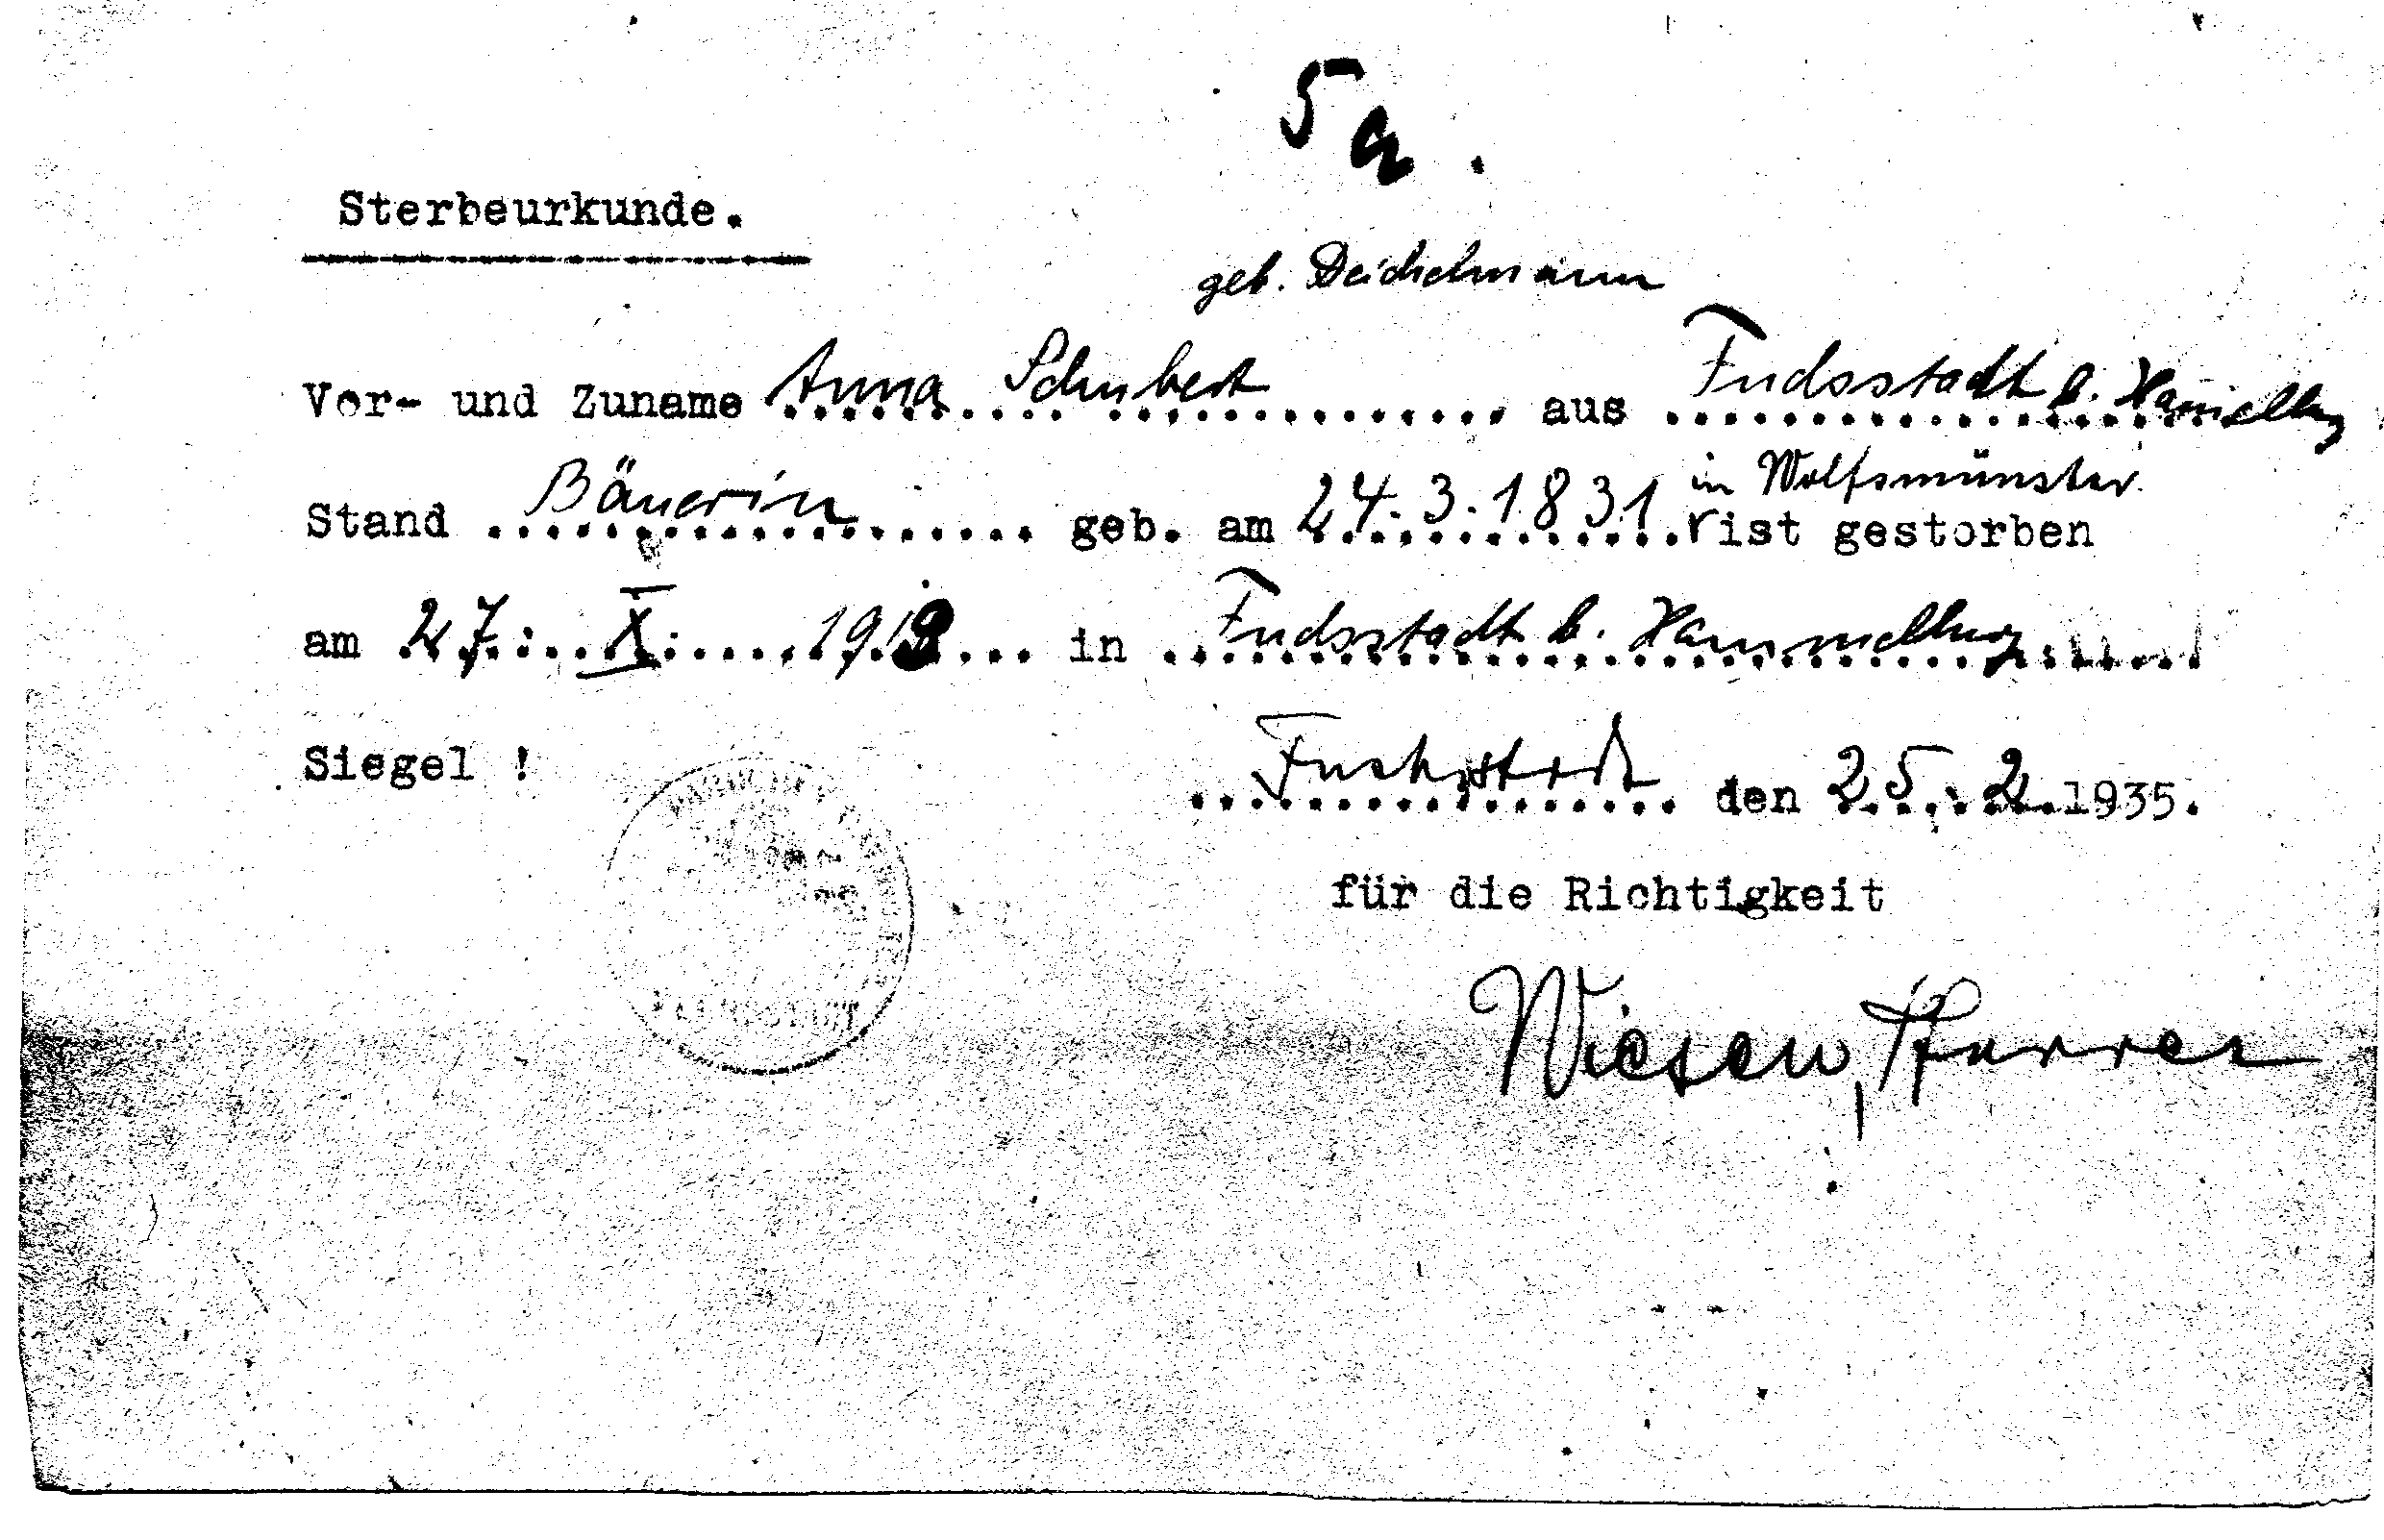 5a.
Sterbeurkunde.
geb. Deichelmann
Vor- und Zuname Anna Schubert aus Fuchsstadt b. Hammelburg
in Wolfsmünster.
Stand Bäuerin geb. am 24.3.1831 ist gestorben
am 27. X. 1918 in Fuchsstadt b. Hammelburg
Siegel ! Fuchsstadt den 25. 2. 1935.
für die Richtigkeit
Wiesen, Pfarrer